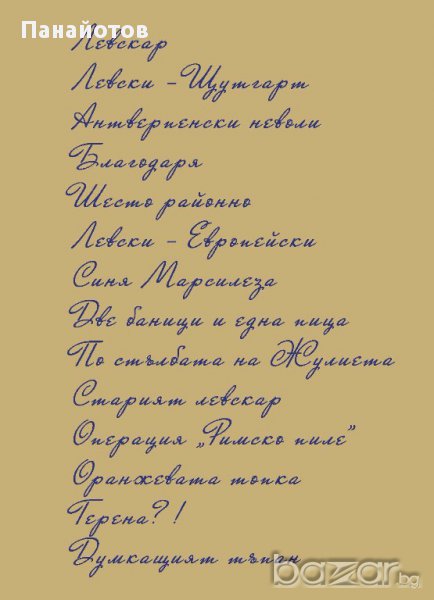 Панайотов
Левскар
Левски - Щутгарт
Антверпенски неволи
Благодаря
Шесто районно
Левски - Европейски
Синя Марсилеза
Две баници и една пица
По стълбата на Жулиета
Старият левскар
Операция „Римско пиле"
Оранжевата топка
Терена?!
Думкащият тъпан
bazar.bg